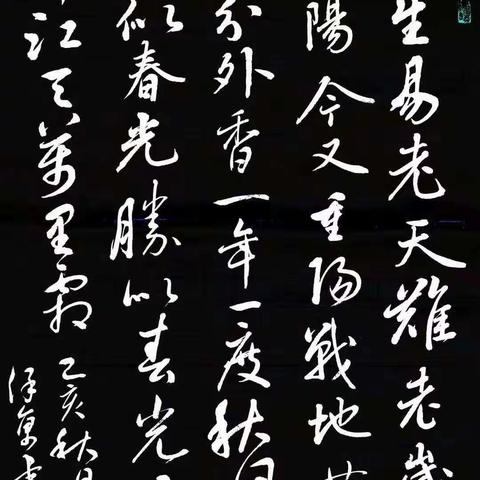 生易老天難老歲
陽今又重陽戰地
分外香一年一度秋
似春光勝似春光
江天萬里霜
乙亥秋